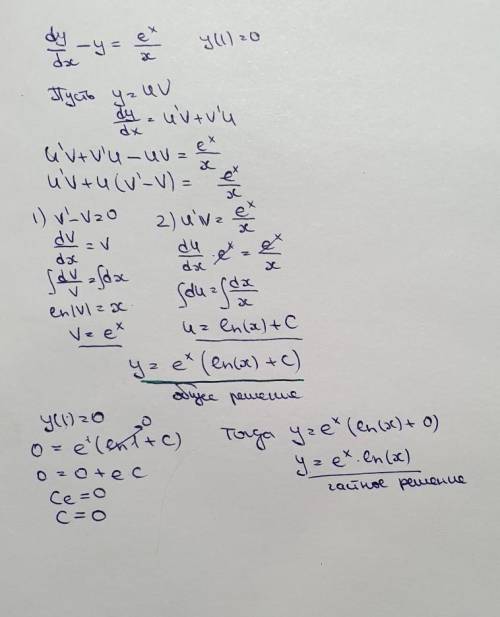 dy/dx - y = e^x/x    y(1)=0
Пусть y=uV
dy/dx = u'V+V'u
u'V+V'u-uV = e^x/x
u'V+u(V'-V) = e^x/x
1) V'-V=0
dV/dx = V
∫dV/V = ∫dx
ln|V|=x
V=e^x
2) u'V = e^x/x
du/dx · e^x = e^x/x
∫du = ∫dx/x
u = ln(x)+C
y = e^x (ln(x)+C)
общее решение
y(1)=0
0 = e^1(ln1+C) 0
0 = 0+eC
Ce=0
C=0
Тогда y=e^x(ln(x)+0)
y=e^x·ln(x)
частное решение